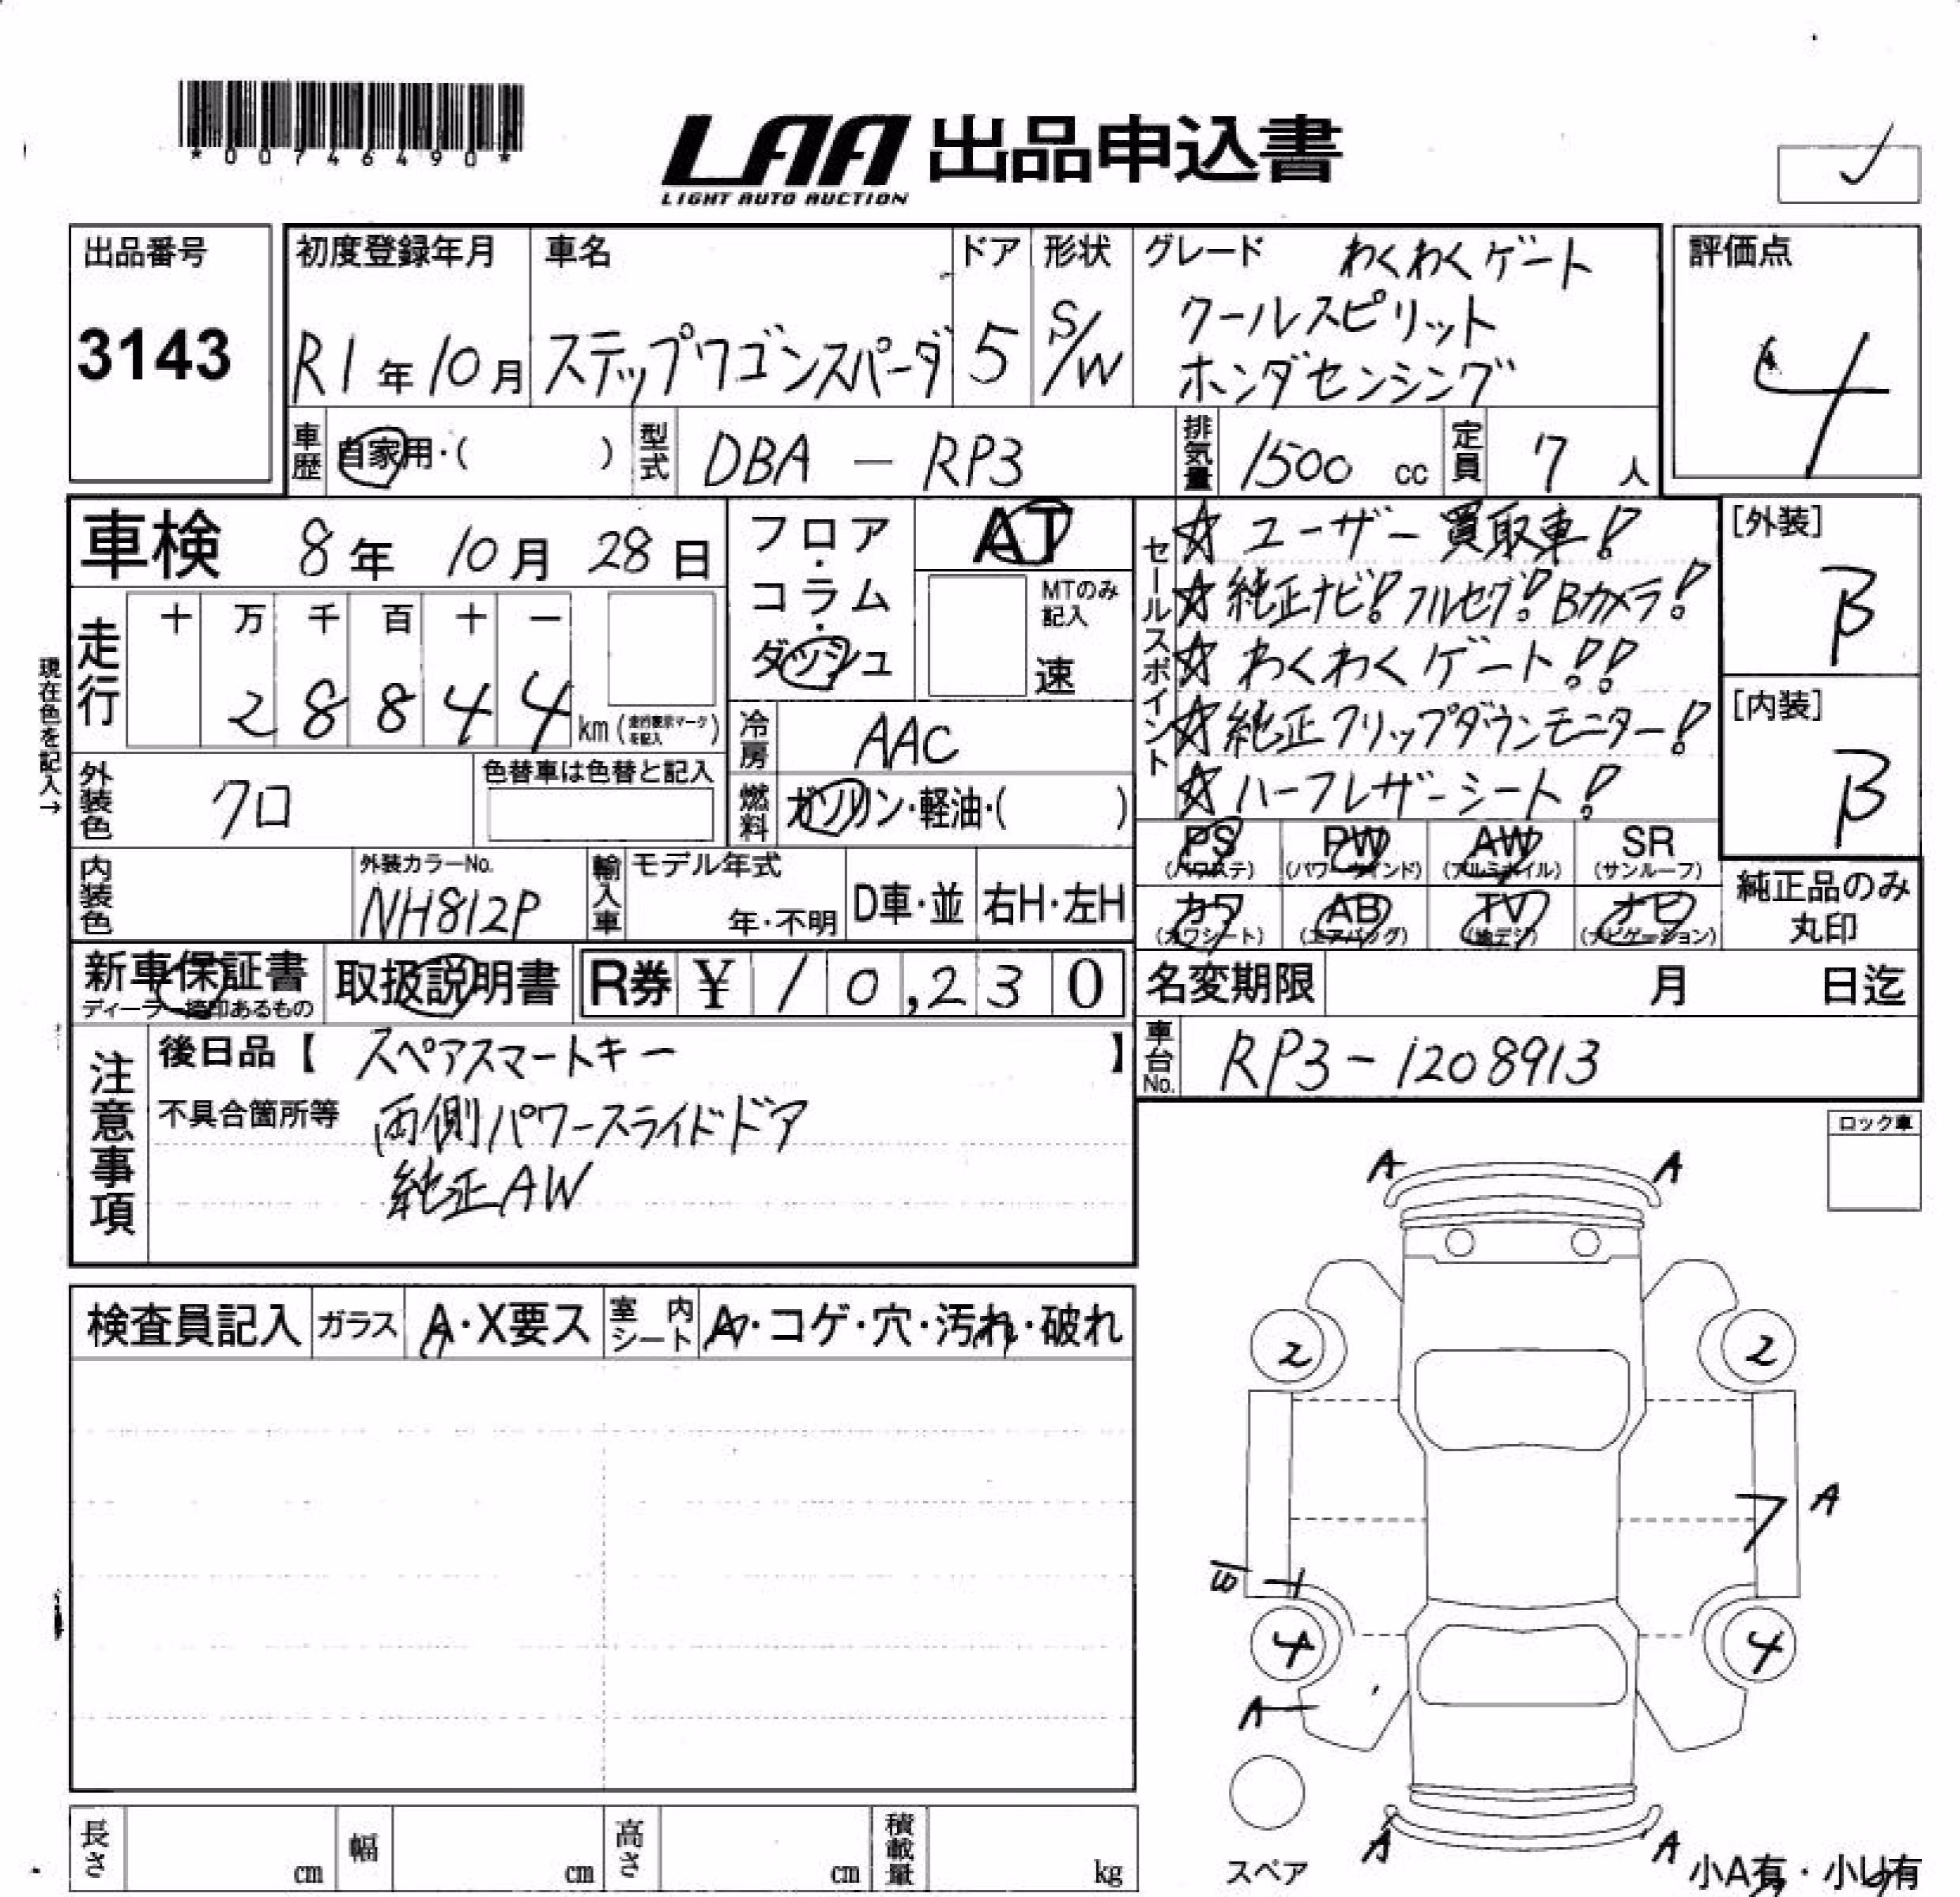 *00746490*
LAA 出品申込書
LIGHT AUTO AUCTION
出品番号
3143
初度登録年月
R1年10月
車名
ステップワゴンスパーダ
ドア
5
形状
S/W
グレード わくわくゲート
クールスピリット
ホンダセンシング
評価点
4
車歴 自家用・( )
型式 DBA - RP3
排気量 1500 cc
定員 7 人
車検 8年 10月 28日
現在色を記入→
走行
十 万 千 百 十 一
2 8 8 4 4 km (走行表示マークを記入)
外装色 クロ
色替車は色替と記入
内装色
外装カラーNo.
NH812P
フロア・コラム・ダッシュ
AT
MTのみ記入
速
冷房 AAC
燃料 ガソリン・軽油・( )
輸入車
モデル年式
年・不明
D車・並
右H・左H
セールスポイント
☆ ユーザー買取車!
☆ 純正ナビ! フルセグ! Bカメラ!
☆ わくわくゲート!!
☆ 純正フリップダウンモニター!
☆ ハーフレザーシート!
[外装]
B
[内装]
B
PS (パワステ)
PW (パワーウインド)
AW (アルミホイル)
SR (サンルーフ)
カワ (カワシート)
AB (エアバッグ)
TV (地デジ)
ナビ (ナビゲーション)
純正品のみ
丸印
新車保証書
ディーラー捺印あるもの
取扱説明書
R券 ¥ 10,230
名変期限 月 日迄
車台No. RP3-1208913
注意事項
後日品【 スペアスマートキー 】
不具合箇所等 両側パワースライドドア
純正AW
ロック車
検査員記入
ガラス A・X要ス
室内シート A・コゲ・穴・汚れ・破れ
A A
2 2
A
B
4 4
A
A A
スペア
小A有・小U有
長さ cm
幅 cm
高さ cm
積載量 kg